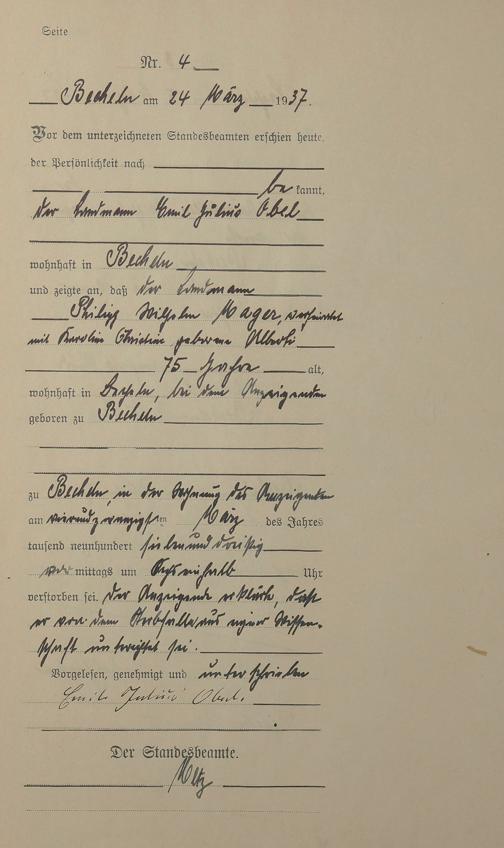 Seite
Nr. 4
Becheln am 24 März 1937.
Vor dem unterzeichneten Standesbeamten erschien heute,
der Persönlichkeit nach
be kannt,
der Landmann Emil Julius Obel
wohnhaft in Becheln
und zeigte an, daß der Landmann
Philipp Wilhelm Mager, verheiratet
mit Karoline Christine geborene Alberti
75 Jahre alt,
wohnhaft in Becheln, bei dem Anzeigenden
geboren zu Becheln
zu Becheln, in der Wohnung des Anzeigenden
am vierundzwanzigsten März des Jahres
tausend neunhundert siebenunddreißig
vor mittags um Uhr
verstorben sei. Der Anzeigende erklärte, daß
er von dem Sterbefalle aus eigner Wissen-
schaft unterrichtet sei.
Vorgelesen, genehmigt und unterschrieben
Emil Julius Obel.
Der Standesbeamte.